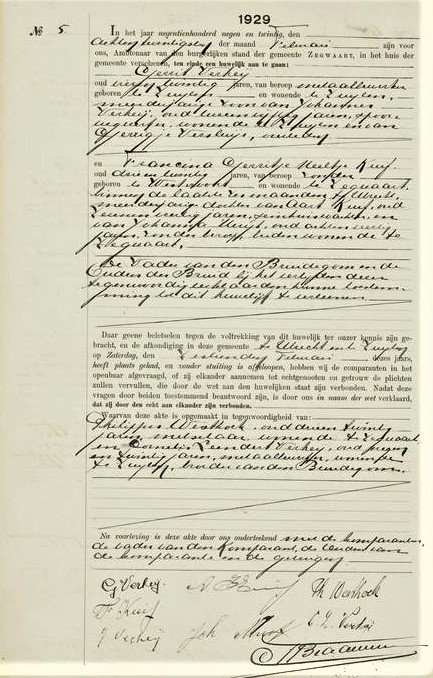 1929
№ 5.
In het jaar negentienhonderd negen en twintig, den
achtentwintigsten der maand Februari zijn voor
ons, Ambtenaar van den burgerlijken stand der gemeente ZEGWAART, in het huis der
gemeente verschenen, ten einde een huwelijk aan te gaan:
Gerrit Verhey
oud twintig jaren, van beroep metaalbewerker
geboren te Zuylen en wonende te Zuylen,
meerderjarige zoon van Johannes
Verheij, oud jaren,
wonende te Zuylen en van
Versluijs, overleden
en Francina Gerritje Neeltje Kuif
oud drieentwintig jaren, van beroep zonder
geboren te en wonende te Zegwaart,
binnen de laatste zes maanden te Utrecht,
meerderjarige dochter van Aart Kuif, oud
jaren, en
van Johanna oud achtenveertig
jaren, zonder beroep, beiden wonende te
Zegwaart.
De Vader van den Bruidegom en de
Ouders der Bruid bij het verlijden dezer
tegenwoordig verklaarden hunne toestem-
ming tot dit huwelijk te verleenen.
Daar geene beletselen tegen de voltrekking van dit huwelijk te onzer kennis zijn ge-
bracht, en de afkondiging in deze gemeente te Utrecht en te Zuylen
op Zaterdag, den Februari dezes jaars,
heeft plaats gehad, en zonder stuiting is afgeloopen, hebben wij de comparanten in het
openbaar afgevraagd, of zij elkander aannemen tot echtgenooten en getrouw de plichten
zullen vervullen, die door de wet aan den huwelijken staat zijn verbonden. Nadat deze
vragen door beiden toestemmend beantwoord zijn, is door ons in naam der wet verklaard,
dat zij door den echt aan elkander zijn verbonden.
Waarvan deze akte is opgemaakt in tegenwoordigheid van:
Philippus Westhoek, oud drieentwintig
jaren, metselaar, wonende te Zegwaart
en Cornelis Leendert Verhey, oud negen
en twintig jaren, metaalbewerker, wonende
te Zuylen, broeder van den Bruidegom.
Na voorlezing is deze akte door ons onderteekend met de comparanten,
de vader van den Komparant, de Ouders van
de komparante en de getuigen.
G Verheij
Ph Westhoek
Kuif
J Verheij
Joh
C L Verheij